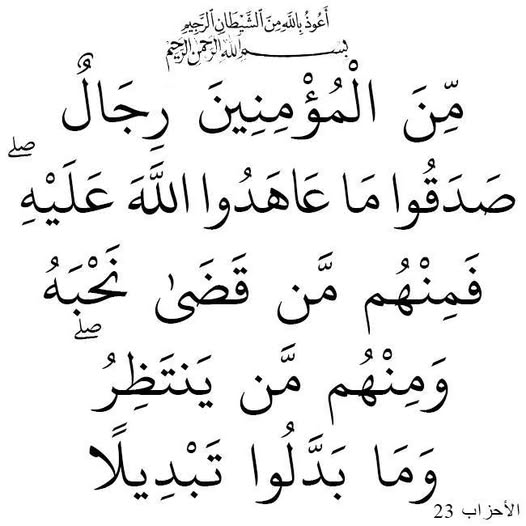 أَعُوذُ بِاللَّهِ مِنَ الشَّيْطَانِ الرَّجِيمِ
بِسْمِ اللَّهِ الرَّحْمَنِ الرَّحِيمِ
مِّنَ الْمُؤْمِنِينَ رِجَالٌ
صَدَقُوا مَا عَاهَدُوا اللَّهَ عَلَيْهِ ۖ
فَمِنْهُم مَّن قَضَىٰ نَحْبَهُ
وَمِنْهُم مَّن يَنتَظِرُ ۖ
وَمَا بَدَّلُوا تَبْدِيلًا
الأحزاب 23